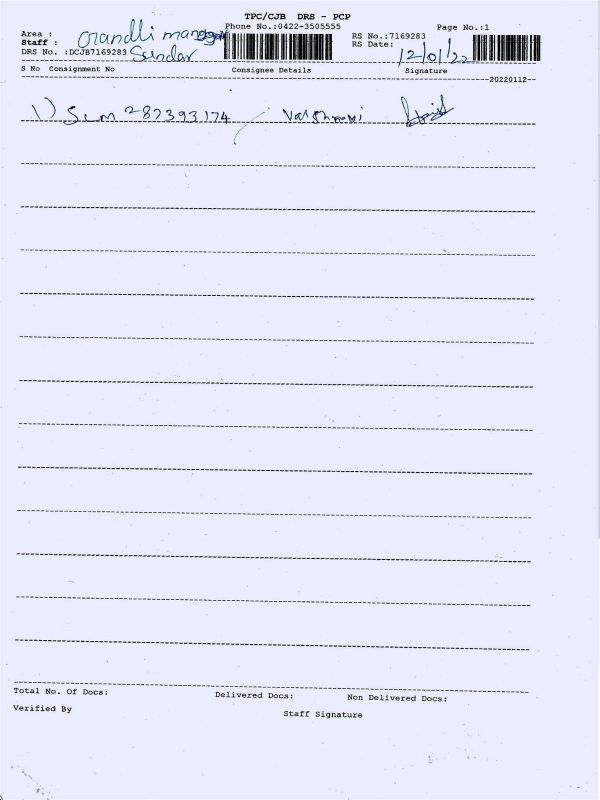 TPC/CJB DRS - PCP
Phone No.:0422-3505555
Page No.:1
Area :
Staff : Sundar
DRS No. :DCJB7169283
RS No.:7169283
RS Date: 12/01/22
S No Consignment No Consignee Details Signature
20220112
1) Sum 287393174
Total No. Of Docs: Delivered Docs: Non Delivered Docs:
Verified By Staff Signature